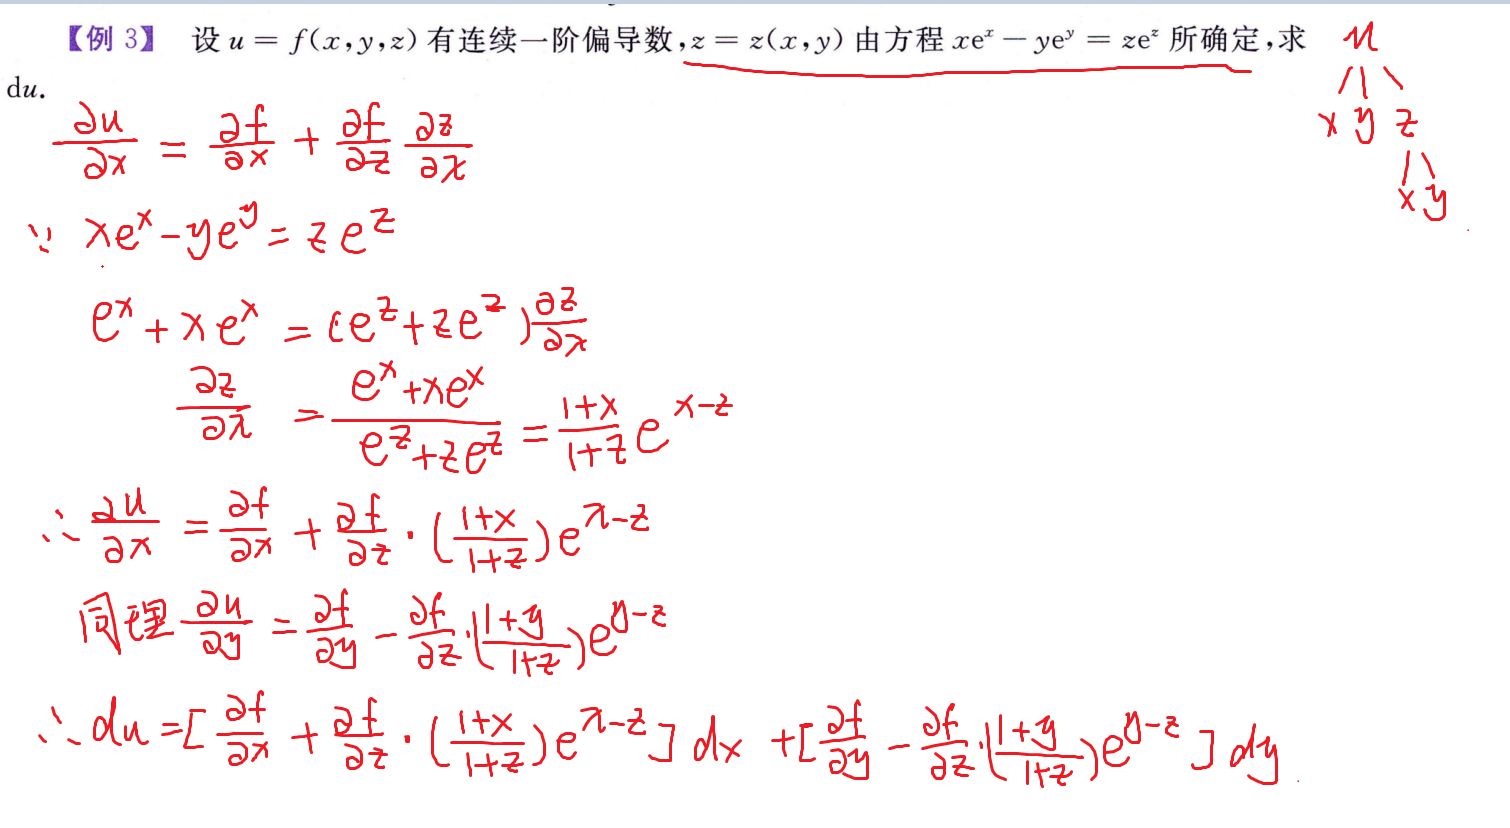 【例 3】 设 u = f(x,y,z) 有连续一阶偏导数,z = z(x,y) 由方程 xeˣ − yeʸ = zeᶻ 所确定,求
du.
u
x y z
x y
∂u/∂x = ∂f/∂x + ∂f/∂z ∂z/∂x
∵ xeˣ − yeʸ = zeᶻ
eˣ + xeˣ = (eᶻ + zeᶻ) ∂z/∂x
∂z/∂x = (eˣ + xeˣ)/(eᶻ + zeᶻ) = (1+x)/(1+z) e^(x−z)
∴ ∂u/∂x = ∂f/∂x + ∂f/∂z · ((1+x)/(1+z)) e^(x−z)
同理 ∂u/∂y = ∂f/∂y − ∂f/∂z · ((1+y)/(1+z)) e^(y−z)
∴ du = [∂f/∂x + ∂f/∂z · ((1+x)/(1+z)) e^(x−z)] dx + [∂f/∂y − ∂f/∂z · ((1+y)/(1+z)) e^(y−z)] dy